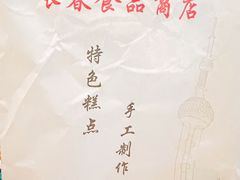 长春食品商店
特色糕点
手工制作